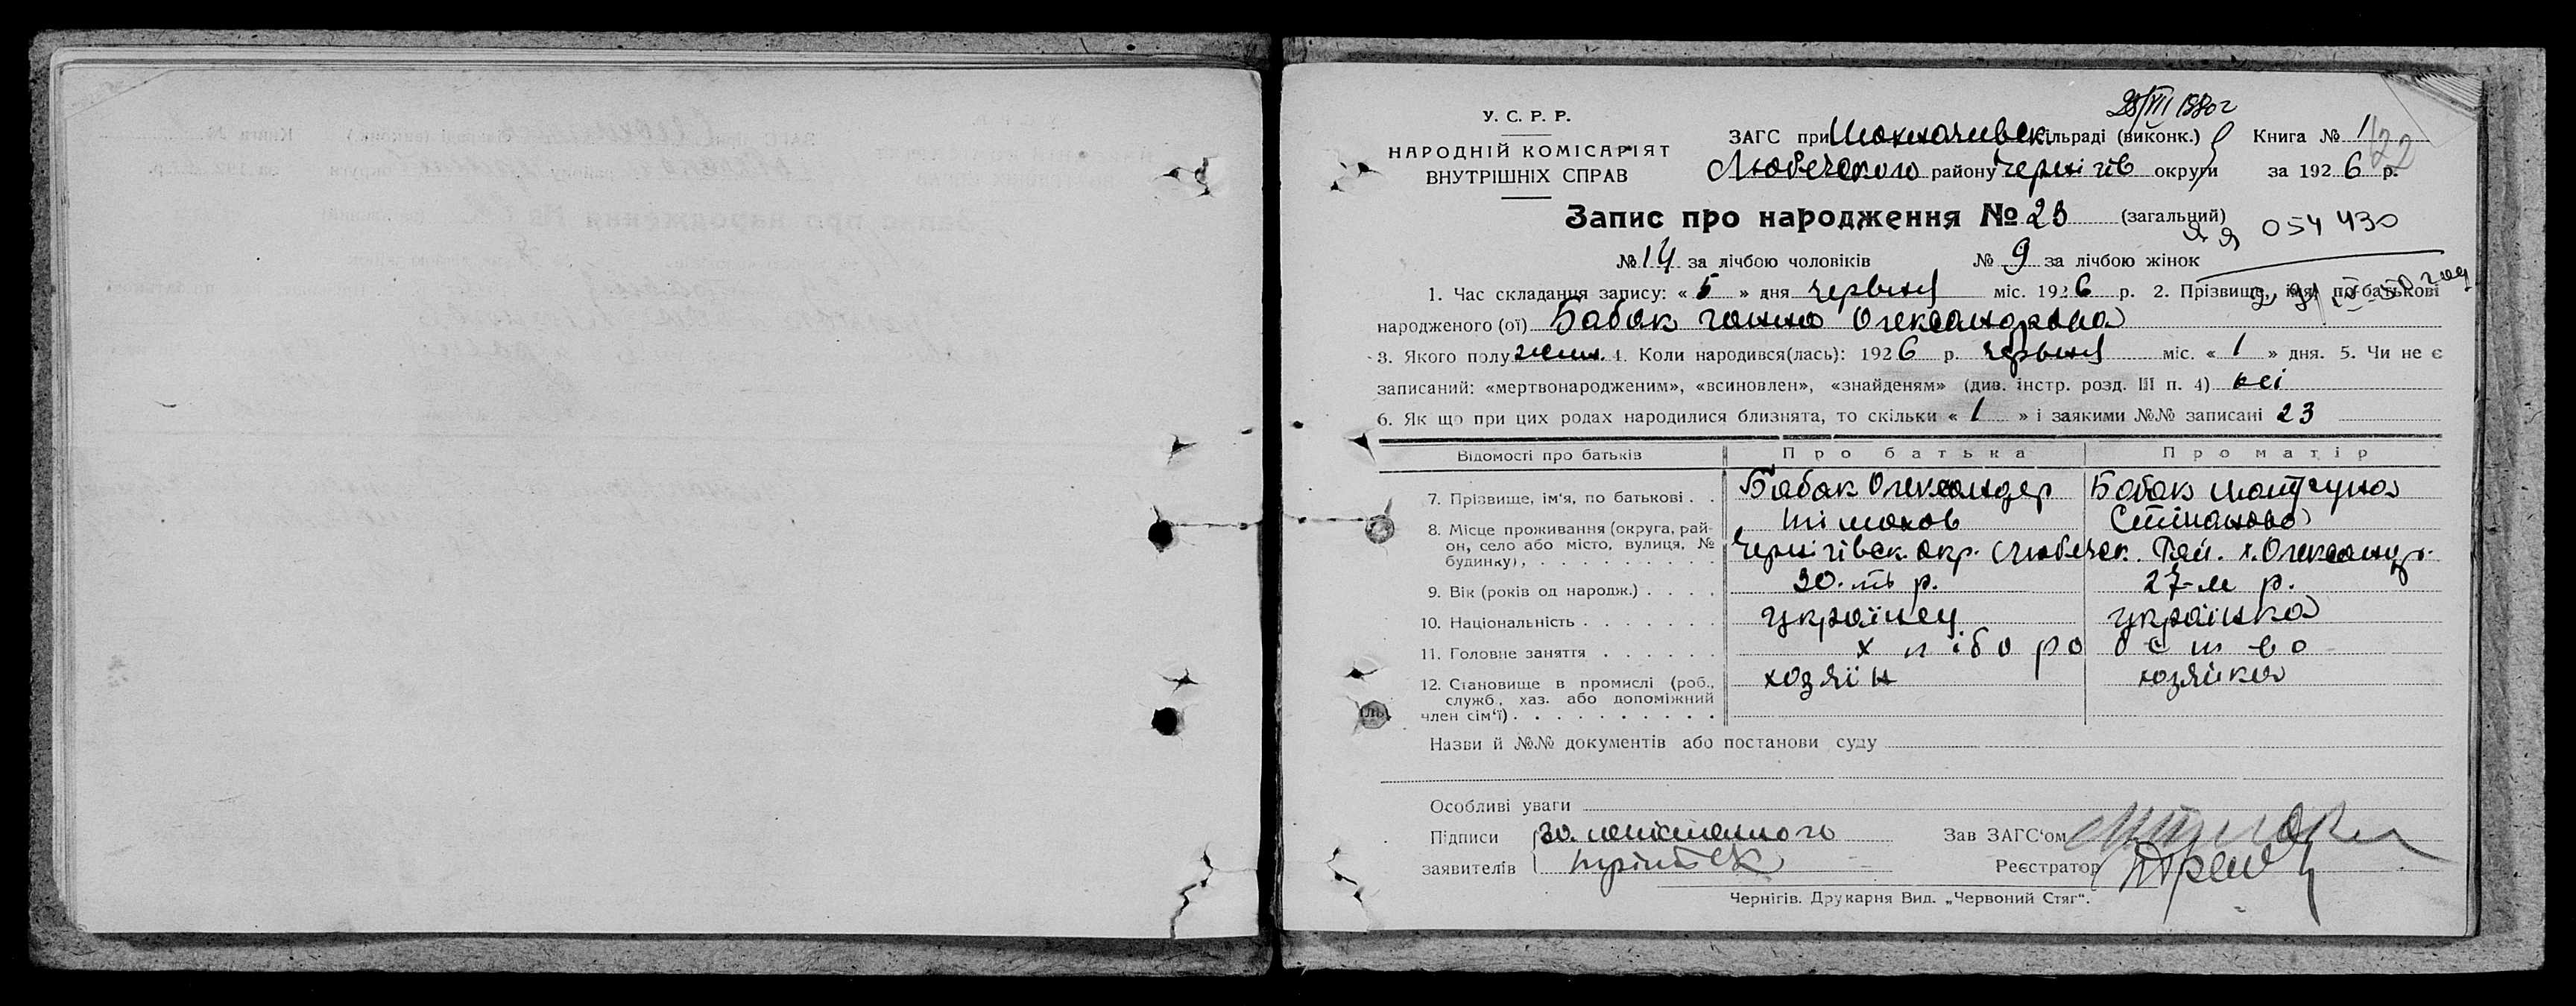 У. С. Р. Р.
НАРОДНІЙ КОМІСАРІЯТ
ВНУТРІШНІХ СПРАВ
ЗАГС при сільраді (виконк.) Книга № 1
Любечского району Чернігів округи за 1926 р.
122
Запис про народження № 23 (загальний)
054430
№ 14 за лічбою чоловіків № 9 за лічбою жінок
1. Час складання запису: « 5 » дня червня міс. 1926 р. 2. Прізвище, імя, по батькові
народженого (ої) Бабак Ганна Олександровна
3. Якого полу жен. 4. Коли народився(лась): 1926 р. червня міс. « 1 » дня. 5. Чи не є
записаний: «мертвонародженим», «всиновлен», «знайденям» (див. інстр. розд. III п. 4) ні
6. Як що при цих родах народилися близнята, то скільки « 1 » і заякими №№ записані 23
Відомості про батьків Про батька Про матір
7. Прізвище, ім'я, по батькові . . Бабак Олександер Бабак
8. Місце проживання (округа, рай-
он, село або місто, вулиця, №
будинку), . . . . . . . . . . Чернігівск. окр. Любечск. Рай. х. Олександр.
9. Вік (років од народж.) . . . . 30-ть р. 27-м р.
10. Національність . . . . . . . українец українка
11. Головне заняття . . . . . . хліборобство
12. Становище в промислі (роб., хозяїн хозяйка
служб., хаз. або допоміжний
член сім'ї) . . . . . . . . . .
Назви й №№ документів або постанови суду
Особливі уваги
Підписи За Зав ЗАГС'ом
заявителів Реєстратор
Чернігів. Друкарня Вид. „Червоний Стяг".